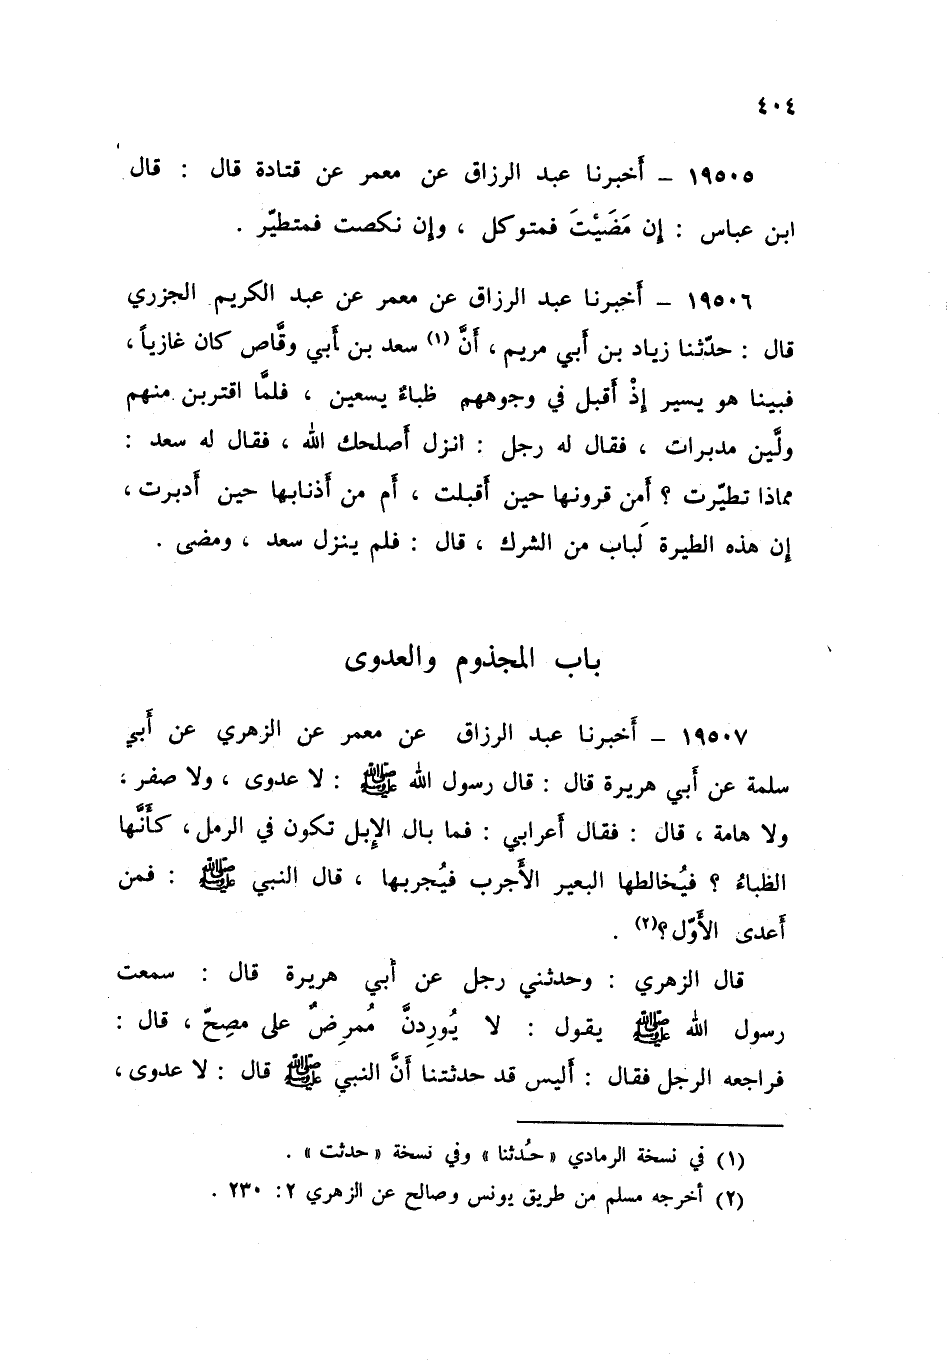 ٤٠٤
١٩٥٠٥ – أَخبرنا عبد الرزاق عن معمر عن قتادة قال : قال
ابن عباس : إن مَضَيْتَ فمتوكل ، وإن نكصت فمتطيّر .
١٩٥٠٦ – أَخبرنا عبد الرزاق عن معمر عن عبد الكريم الجزري
قال : حدّثنا زياد بن أَبي مريم ، أَنَّ (١) سعد بن أَبي وقَّاص كان غازياً ،
فبينا هو يسير إِذْ أَقبل في وجوههم ظباءٌ يسعين ، فلمَّا اقتربن منهم
ولَّين مدبرات ، فقال له رجل : انزل أَصلحك الله ، فقال له سعد :
مماذا تطيّرت ؟ أَمن قرونها حين أَقبلت ، أَم من أَذنابها حين أَدبرت ،
إن هذه الطيرة لَباب من الشرك ، قال : فلم ينزل سعد ، ومضى .
باب المجذوم والعدوى
١٩٥٠٧ – أَخبرنا عبد الرزاق عن معمر عن الزهري عن أَبي
سلمة عن أَبي هريرة قال : قال رسول الله ﷺ : لا عدوى ، ولا صفر ،
ولا هامة ، قال : فقال أَعرابي : فما بال الإِبل تكون في الرمل ، كأَنَّها
الظباءُ ؟ فيُخالطها البعير الأَجرب فيُجربها ، قال النبي ﷺ : فمن
أَعدى الأَوّل ؟(٢) .
قال الزهري : وحدثني رجل عن أَبي هريرة قال : سمعت
رسول الله ﷺ يقول : لا يُورِدنَّ مُمرِضٌ على مصِحّ ، قال :
فراجعه الرجل فقال : أَليس قد حدثتنا أَنَّ النبي ﷺ قال : لا عدوى ،
(١) في نسخة الرمادي «حُدثنا» وفي نسخة «حدثت» .
(٢) أخرجه مسلم من طريق يونس وصالح عن الزهري ٢ : ٢٣٠ .